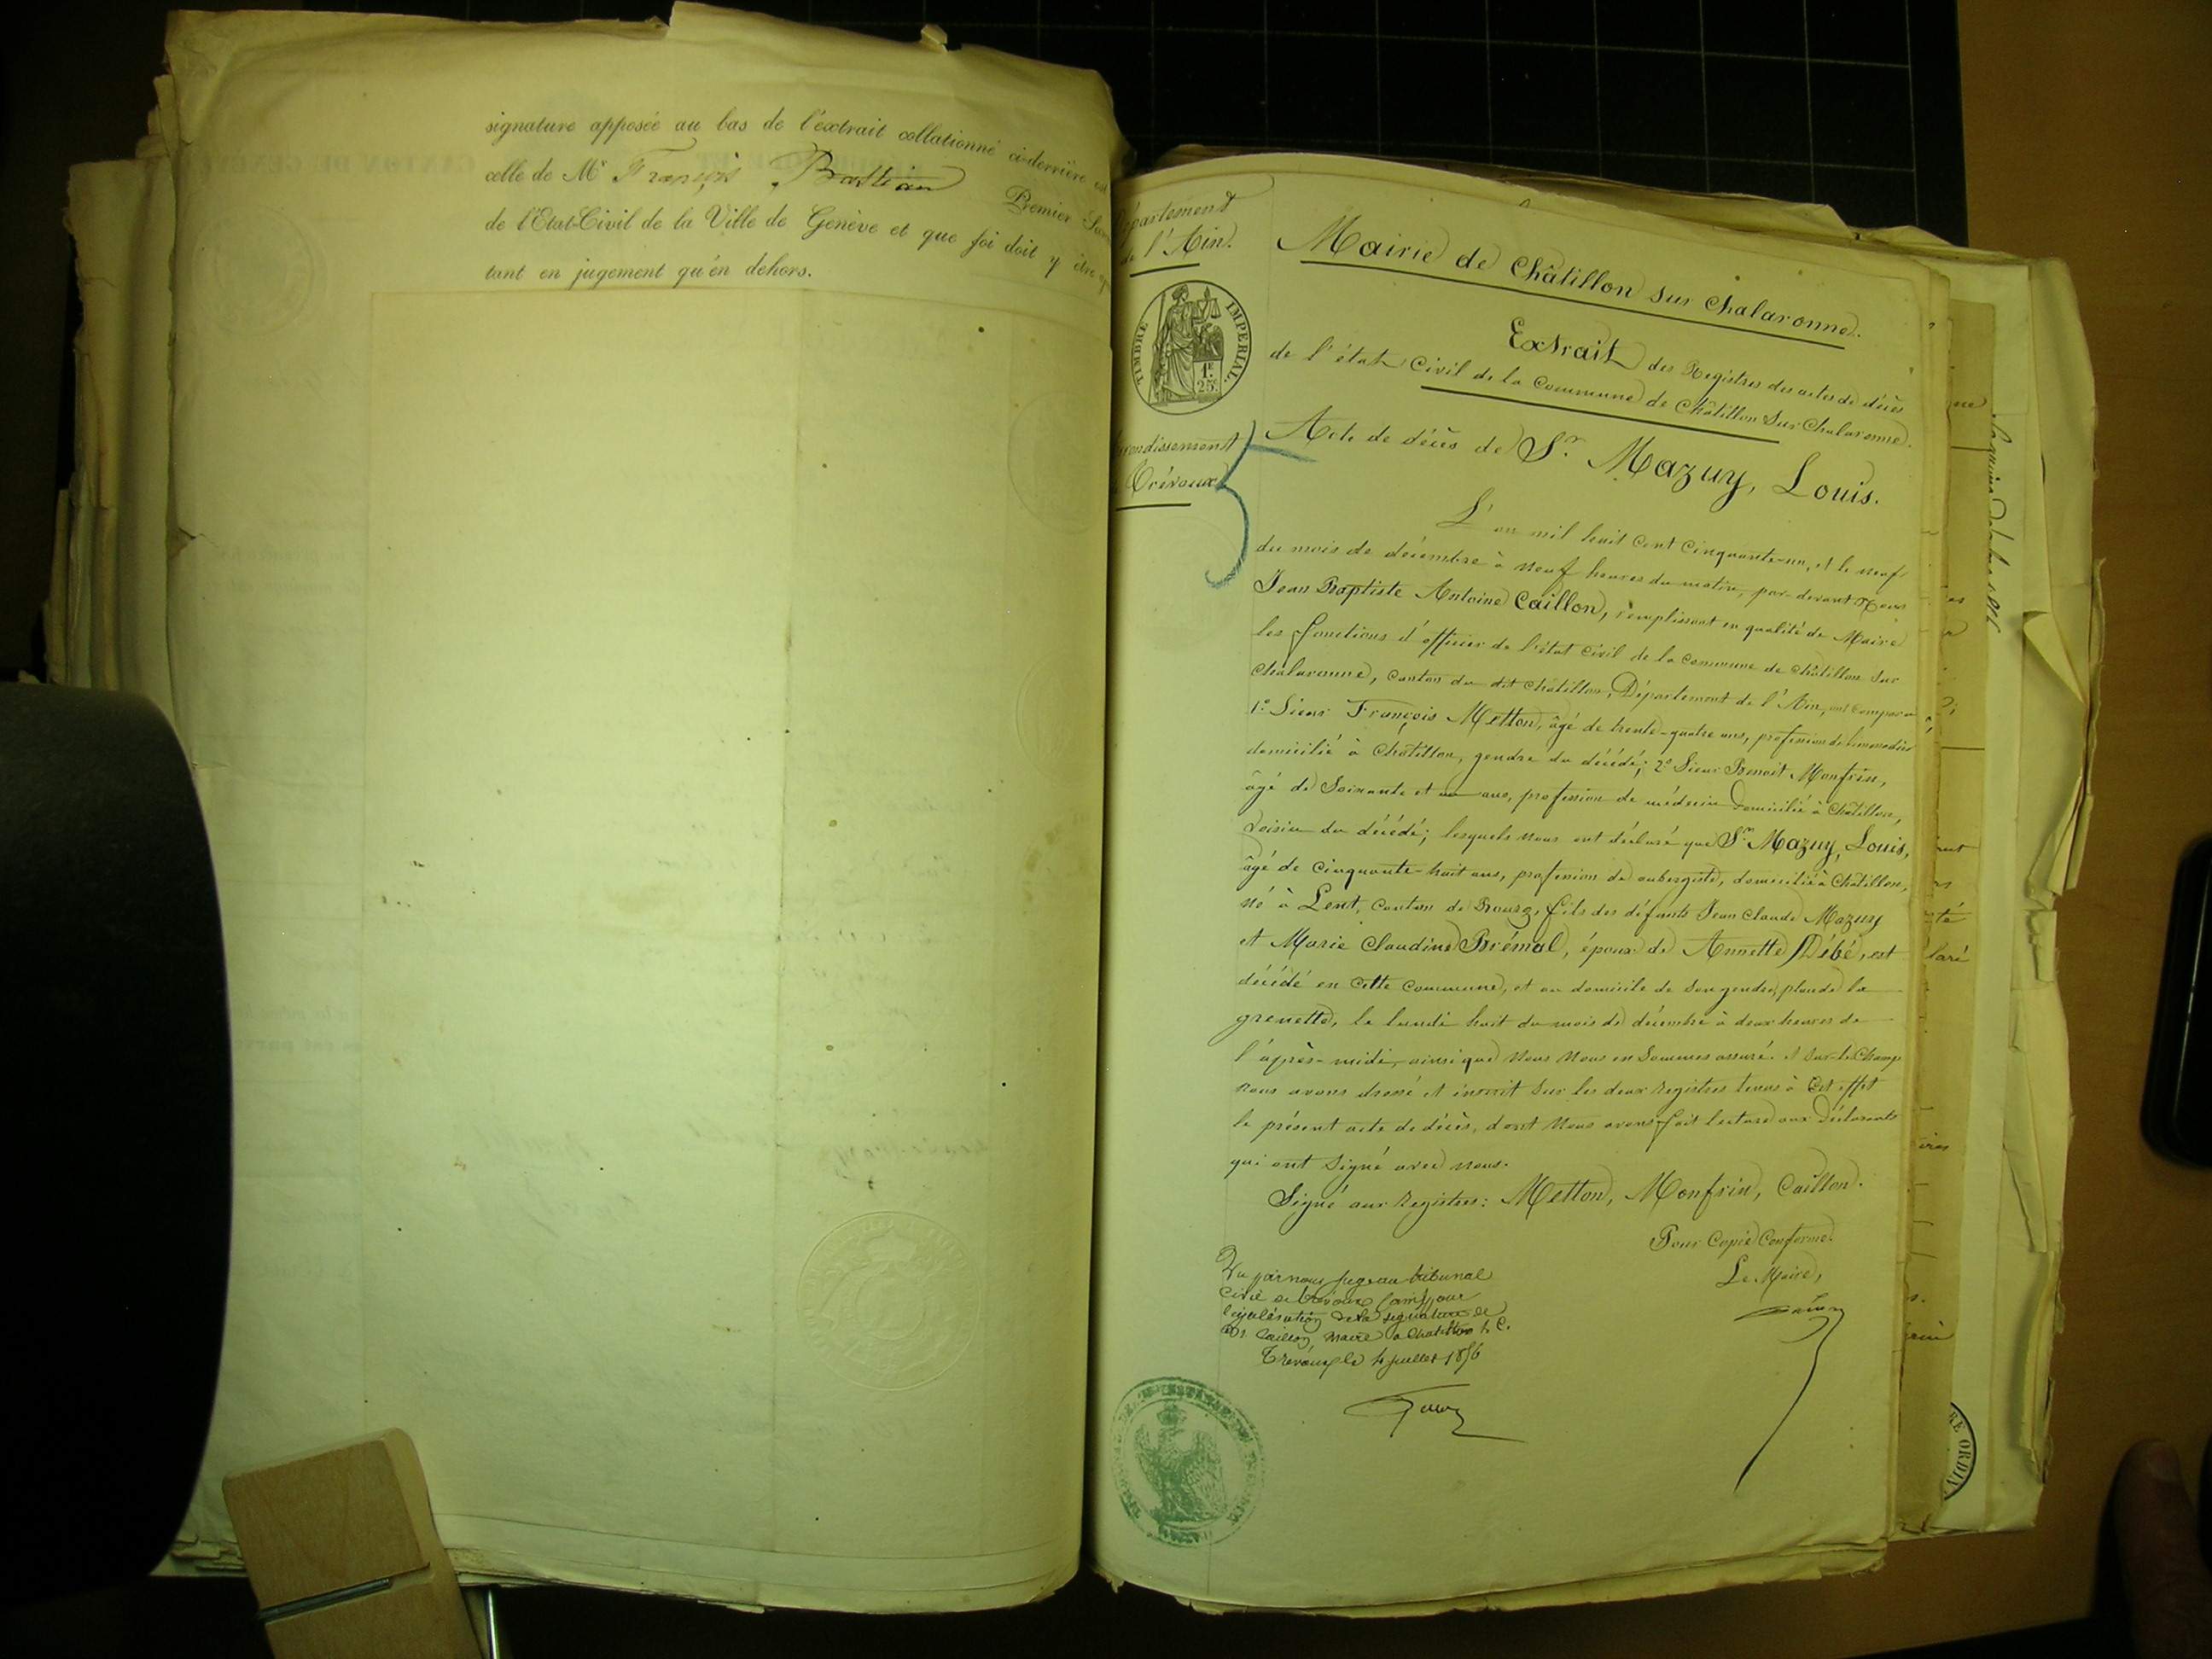 signature apposée au bas de l'extrait collationné ci-derrière est
celle de Mr François Bastian Premier
de l'Etat-Civil de la Ville de Genève et que foi doit y être
tant en jugement qu'en dehors.
Département
de l'Ain.
TIMBRE IMPERIAL.
1F.
25c
Arrondissement
de Trévoux
5
Mairie de Châtillon sur Chalaronne.
Extrait des Registres des actes de décès
de l'état Civil de la Commune de Châtillon Sur Chalaronne.
Acte de décès de Sr. Mazuy, Louis.
L'an mil huit cent cinquante-un, et le neuf
du mois de décembre à neuf heures du matin, par-devant Nous
Jean Baptiste Antoine Caillon, remplissant en qualité de Maire
les fonctions d'officier de l'état civil de la commune de Châtillon Sur
Chalaronne, canton du dit Châtillon, Département de l'Ain, ont comparu
1º Sieur François Metton, âgé de trente-quatre ans, profession de limonadier
domicilié à Châtillon, gendre du décédé; 2º Sieur Benoit Monfrin,
âgé de Soixante et un ans, profession de médecin domicilié à Châtillon,
Voisin du décédé; lesquels nous ont déclaré que Sr. Mazuy, Louis,
âgé de cinquante-huit ans, profession de aubergiste, domicilié à Châtillon,
né à Lent, Canton de Bourg, fils des défunts Jean Claude Mazuy
et Marie Claudine Brémal, époux de Annette Débé, est
décédé en cette Commune, et au domicile de son gendre, place de la
grenette, le lundi huit du mois de décembre à deux heures de
l'après-midi, ainsi que Nous Nous en Sommes assuré. et sur-le-Champ
nous avons dressé et inscrit Sur les deux Registres tenus à Cet effet
le présent acte de décès, dont Nous avons fait lecture aux Déclarants
qui ont Signé avec nous.
Signé aux Registres: Metton, Monfrin, Caillon.
Pour Copie Conforme.
Le Maire,
Vu par nous Juge au tribunal
Civil de trevoux pour
légalisation de la signature de
Mr. Caillon Maire a Chatillon s. C.
Trevoux le 4 juillet 1856